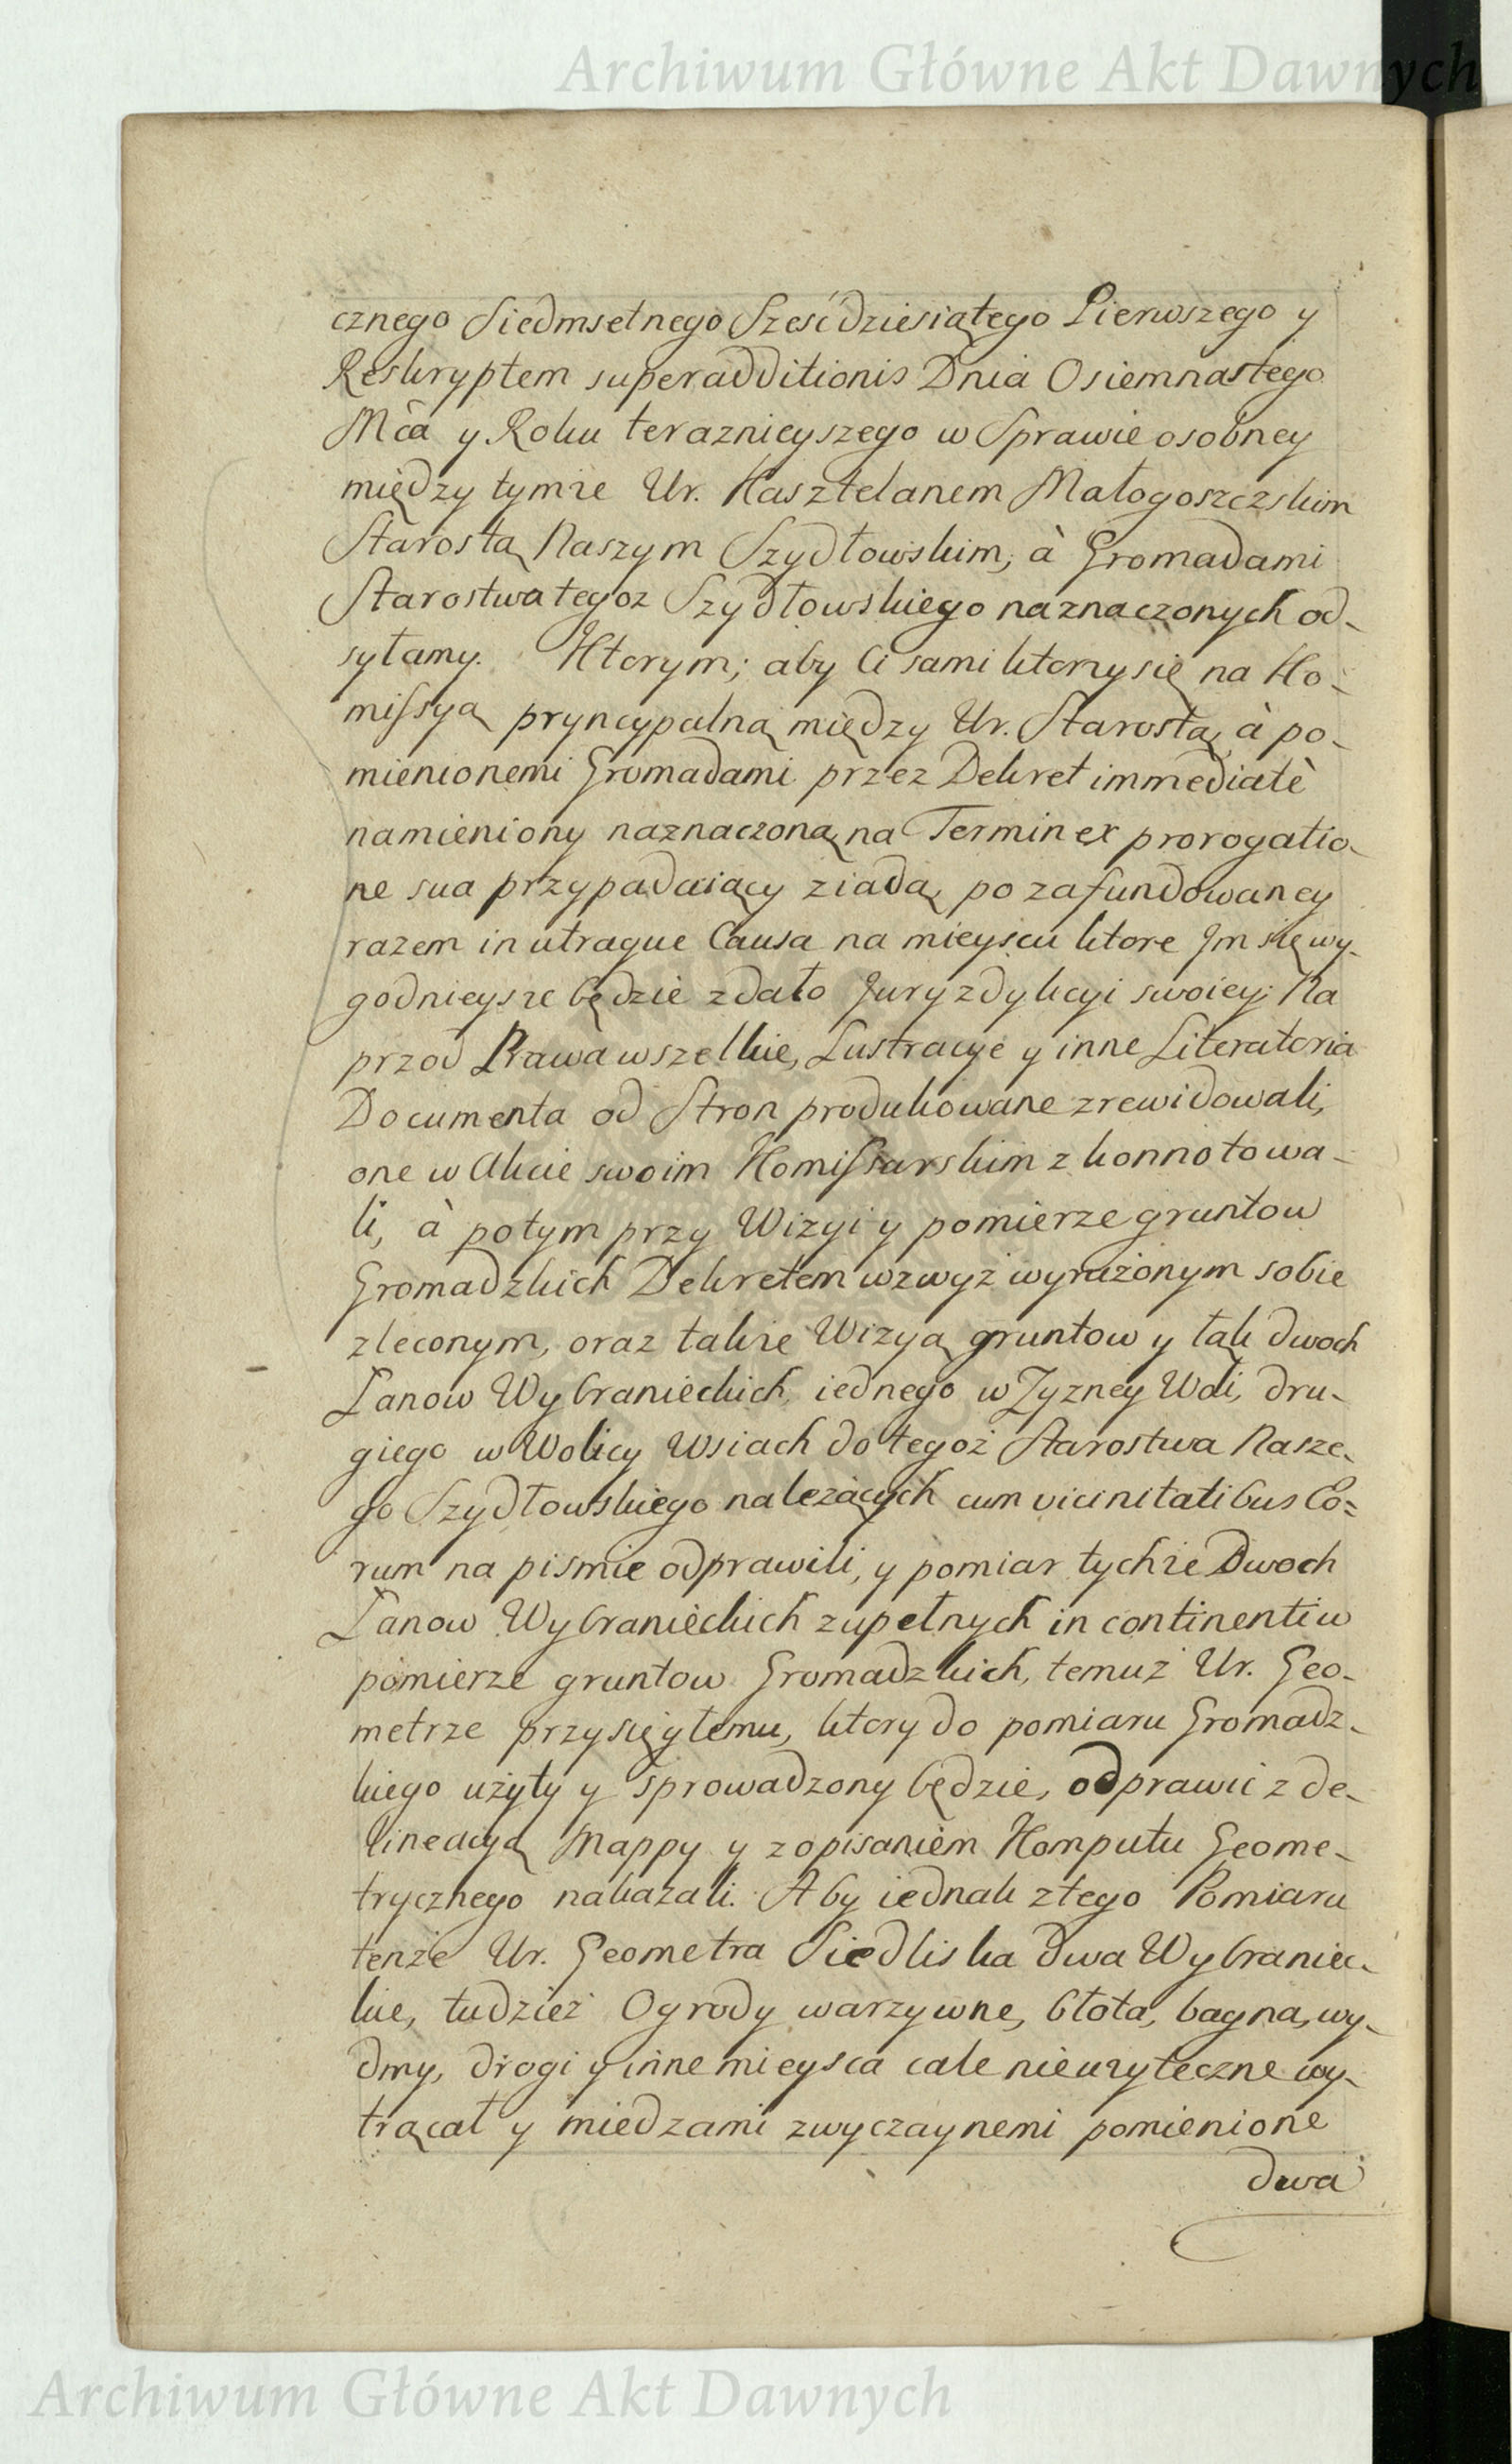 Archiwum Główne Akt Dawnych
cznego Siedmsetnego Sześćdziesiątego Pierwszego y
Reskryptem superadditionis Dnia Osiemnastego
Mca y Roku teraznieyszego w Sprawie osobney
między tymże Ur. Kasztelanem Małogoszczskim
Starostą Naszym Szydłowskim, à Gromadami
Starostwa tegoz Szydłowskiego naznaczonych od-
syłamy. Ktorym; aby Ci sami ktorzy się na Ko-
missyą pryncypalną między Ur. Starostą, à po-
mienionemi Gromadami przez Dekret immediatè
namieniony naznaczoną na Termin ex prorogatio-
ne sua przypadaiący ziadą, po zafundowaney
razem in utraque Causa na mieyscu ktore Jm się wy-
godnieysze będzie zdało Juryzdykcyi swoiey; Na
przod Prawa wszelkie, Lustracye y inne Literatoria
Documenta od Stron produkowane zrewidowali,
one w Akcie swoim Komissarskim zkonnotowa-
li, à potym przy Wizyi y pomierze gruntow
Gromadzkich Dekretem wzwyż wyrażonym sobie
zleconym, oraz także Wizyą gruntow y łąk dwoch
Łanow Wybranieckich, iednego w Zyzney Woli, dru-
giego w Wolicy Wsiach do tegoż Starostwa Nasze-
go Szydłowskiego należących cum vicinitatibus Eo-
rum na pismie odprawili, y pomiar tychże Dwoch
Łanow Wybranieckich zupełnych in continenti w
pomierze gruntow Gromadzkich, temuż Ur. Geo-
metrze przysięgłemu, ktory do pomiaru Gromadz-
kiego użyty y sprowadzony będzie, odprawić z de-
lineacyą Mappy y z opisaniem Komputu Geome-
trycznego nakazali. Aby iednak z tego Pomiaru
tenże Ur. Geometra Siedliska dwa Wybraniec-
kie, tudzież Ogrody warzywne, błota, bagna, wy-
dmy, drogi y inne mieysca cale nieużyteczne wy-
trącał y miedzami zwyczaynemi pomienione
dwa
Archiwum Główne Akt Dawnych